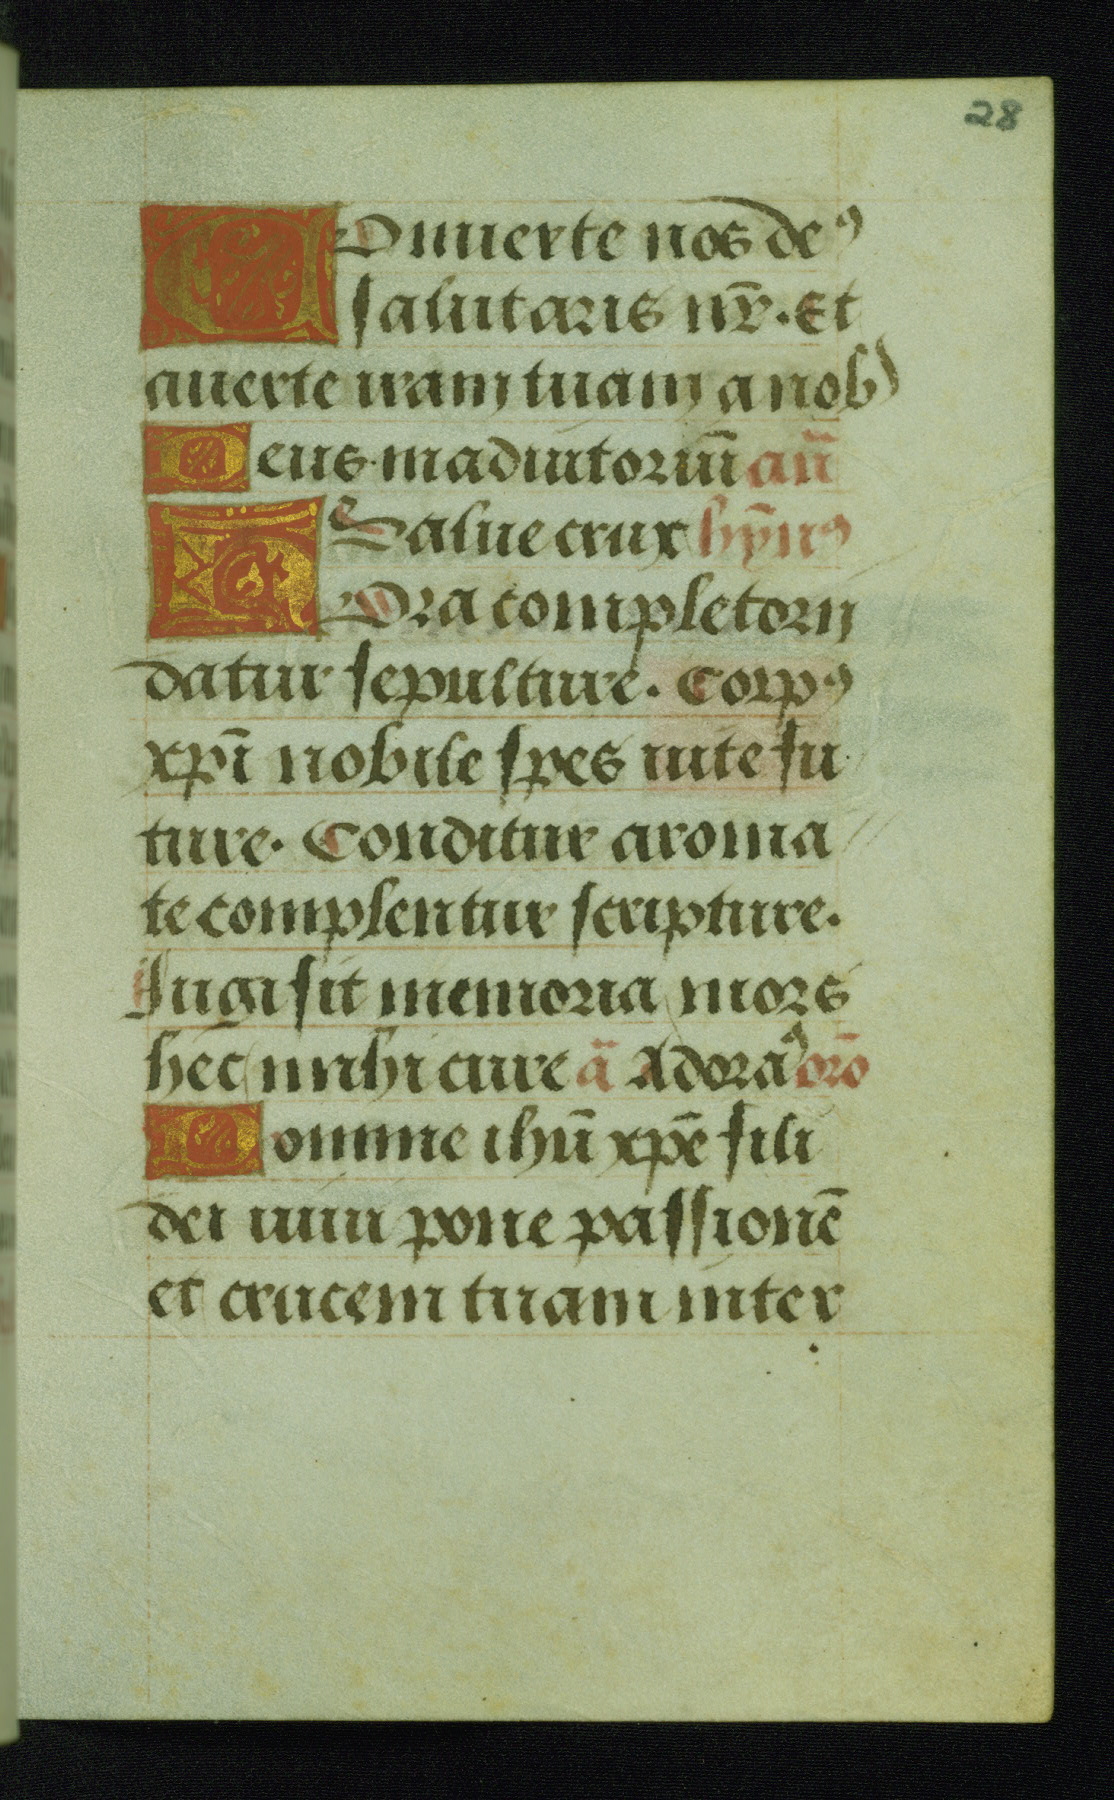 28
COnuerte nos deꝰ
salutaris nr̄. Et
auerte iram tuam a nob
Deus in adiutoriū añ
Salue crux hȳnꝰ
HOra completorij
datur sepulture. Corpꝰ
xpī nobile spes uite fu
ture. Conditur aroma
te complentur scripture.
Iugi sit memoria mors
hec michi cure ā Adoraꝰ orō
Domine ihū xpē fili
dei uiui pone passionē
et crucem tuam inter